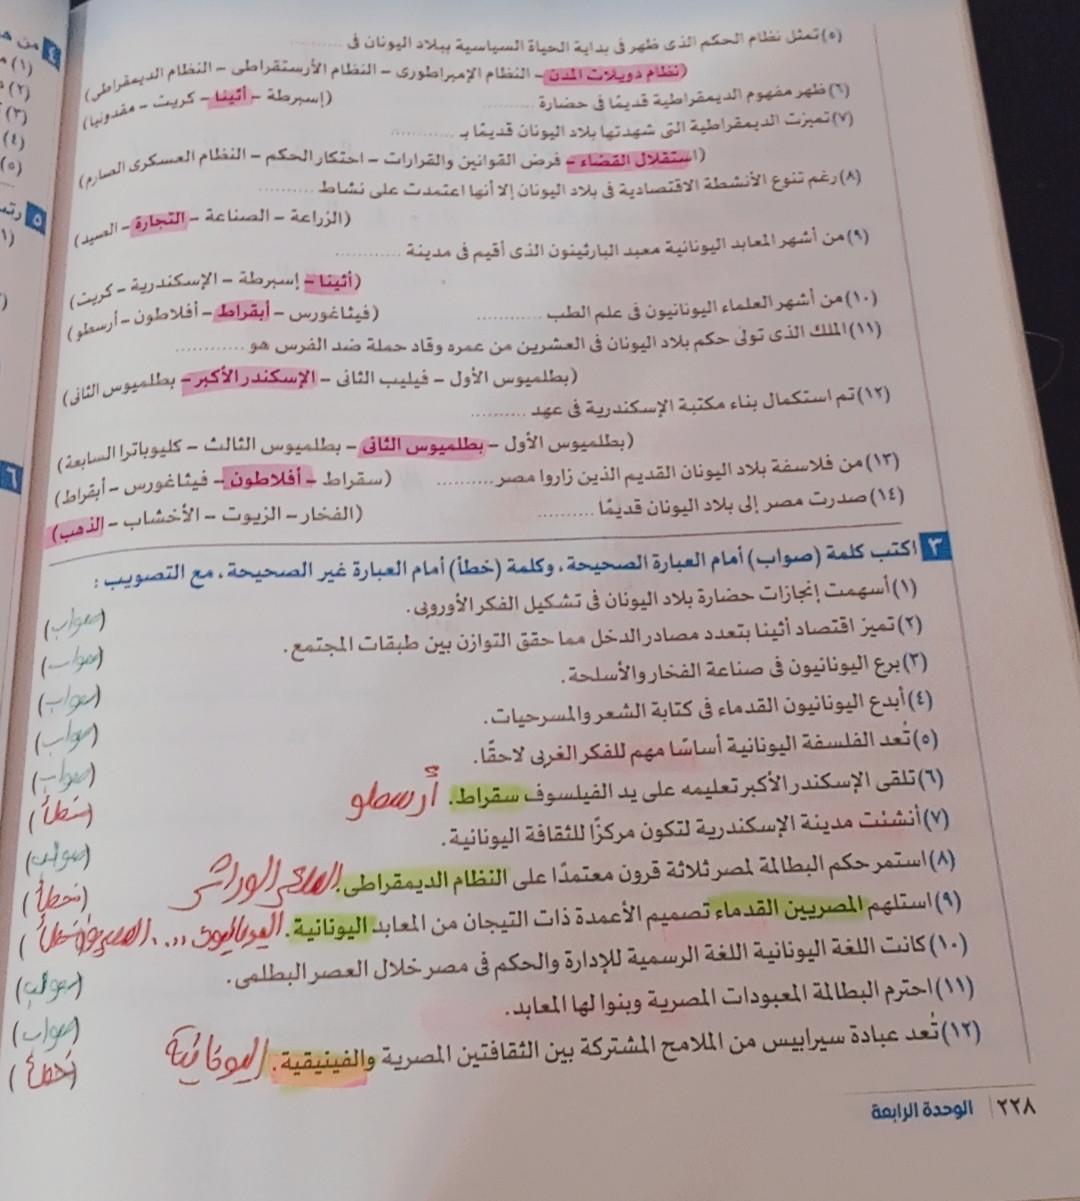 (٥) تمثل نظام الحكم الذى ظهر فى بداية الحياة السياسية ببلاد اليونان فى ..........
(نظام دويلات المدن – النظام الإمبراطورى – النظام الأرستقراطى – النظام الديمقراطى)
(٦) ظهر مفهوم الديمقراطية قديمًا فى حضارة .......... (إسبرطة – أثينا – كريت – مقدونيا)
(٧) تميزت الديمقراطية التى شهدتها بلاد اليونان قديمًا بـ ..........
(استقلال القضاء – فرض القوانين والقرارات – احتكار الحكم – النظام العسكرى الصارم)
(٨) رغم تنوع الأنشطة الاقتصادية فى بلاد اليونان إلا أنها اعتمدت على نشاط ..........
(الزراعة – الصناعة – التجارة – الصيد)
(٩) من أشهر المعابد اليونانية معبد البارثينون الذى أقيم فى مدينة ..........
(أثينا – إسبرطة – الإسكندرية – كريت)
(١٠) من أشهر العلماء اليونانيون فى علم الطب .......... (فيثاغورس – أبقراط – أفلاطون – أرسطو)
(١١) الملك الذى تولى حكم بلاد اليونان فى العشرين من عمره وقاد حملة ضد الفرس هو ..........
(بطلميوس الأول – فيليب الثانى – الإسكندر الأكبر – بطلميوس الثانى)
(١٢) تم استكمال بناء مكتبة الإسكندرية فى عهد ..........
(بطلميوس الأول – بطلميوس الثانى – بطلميوس الثالث – كليوباترا السابعة)
(١٣) من فلاسفة بلاد اليونان القديم الذين زاروا مصر .......... (سقراط – أفلاطون – فيثاغورس – أبقراط)
(١٤) صدرت مصر إلى بلاد اليونان قديمًا .......... (الفخار – الزيوت – الأخشاب – الذهب)
٣ اكتب كلمة (صواب) أمام العبارة الصحيحة، وكلمة (خطأ) أمام العبارة غير الصحيحة، مع التصويب :
(١) أسهمت إنجازات حضارة بلاد اليونان فى تشكيل الفكر الأوروبى. (صواب)
(٢) تميز اقتصاد أثينا بتعدد مصادر الدخل مما حقق التوازن بين طبقات المجتمع. (صواب)
(٣) برع اليونانيون فى صناعة الفخار والأسلحة. (صواب)
(٤) أبدع اليونانيون القدماء فى كتابة الشعر والمسرحيات. (صواب)
(٥) تُعد الفلسفة اليونانية أساسًا مهم للفكر الغربى لاحقًا. (صواب)
(٦) تلقى الإسكندر الأكبر تعليمه على يد الفيلسوف سقراط. أرسطو (خطأ)
(٧) أنشئت مدينة الإسكندرية لتكون مركزًا للثقافة اليونانية. (صواب)
(٨) استمر حكم البطالمة لمصر ثلاثة قرون معتمدًا على النظام الديمقراطى. الملكى الوراثى (خطأ)
(٩) استلهم المصريين القدماء تصميم الأعمدة ذات التيجان من المعابد اليونانية. اليونانيون .... المصرية (خطأ)
(١٠) كانت اللغة اليونانية اللغة الرسمية للإدارة والحكم فى مصر خلال العصر البطلمى. (صواب)
(١١) احترم البطالمة المعبودات المصرية وبنوا لها المعابد. (صواب)
(١٢) تُعد عبادة سيرابيس من الملامح المشتركة بين الثقافتين المصرية والفينيقية. اليونانية (خطأ)
٢٢٨ | الوحدة الرابعة